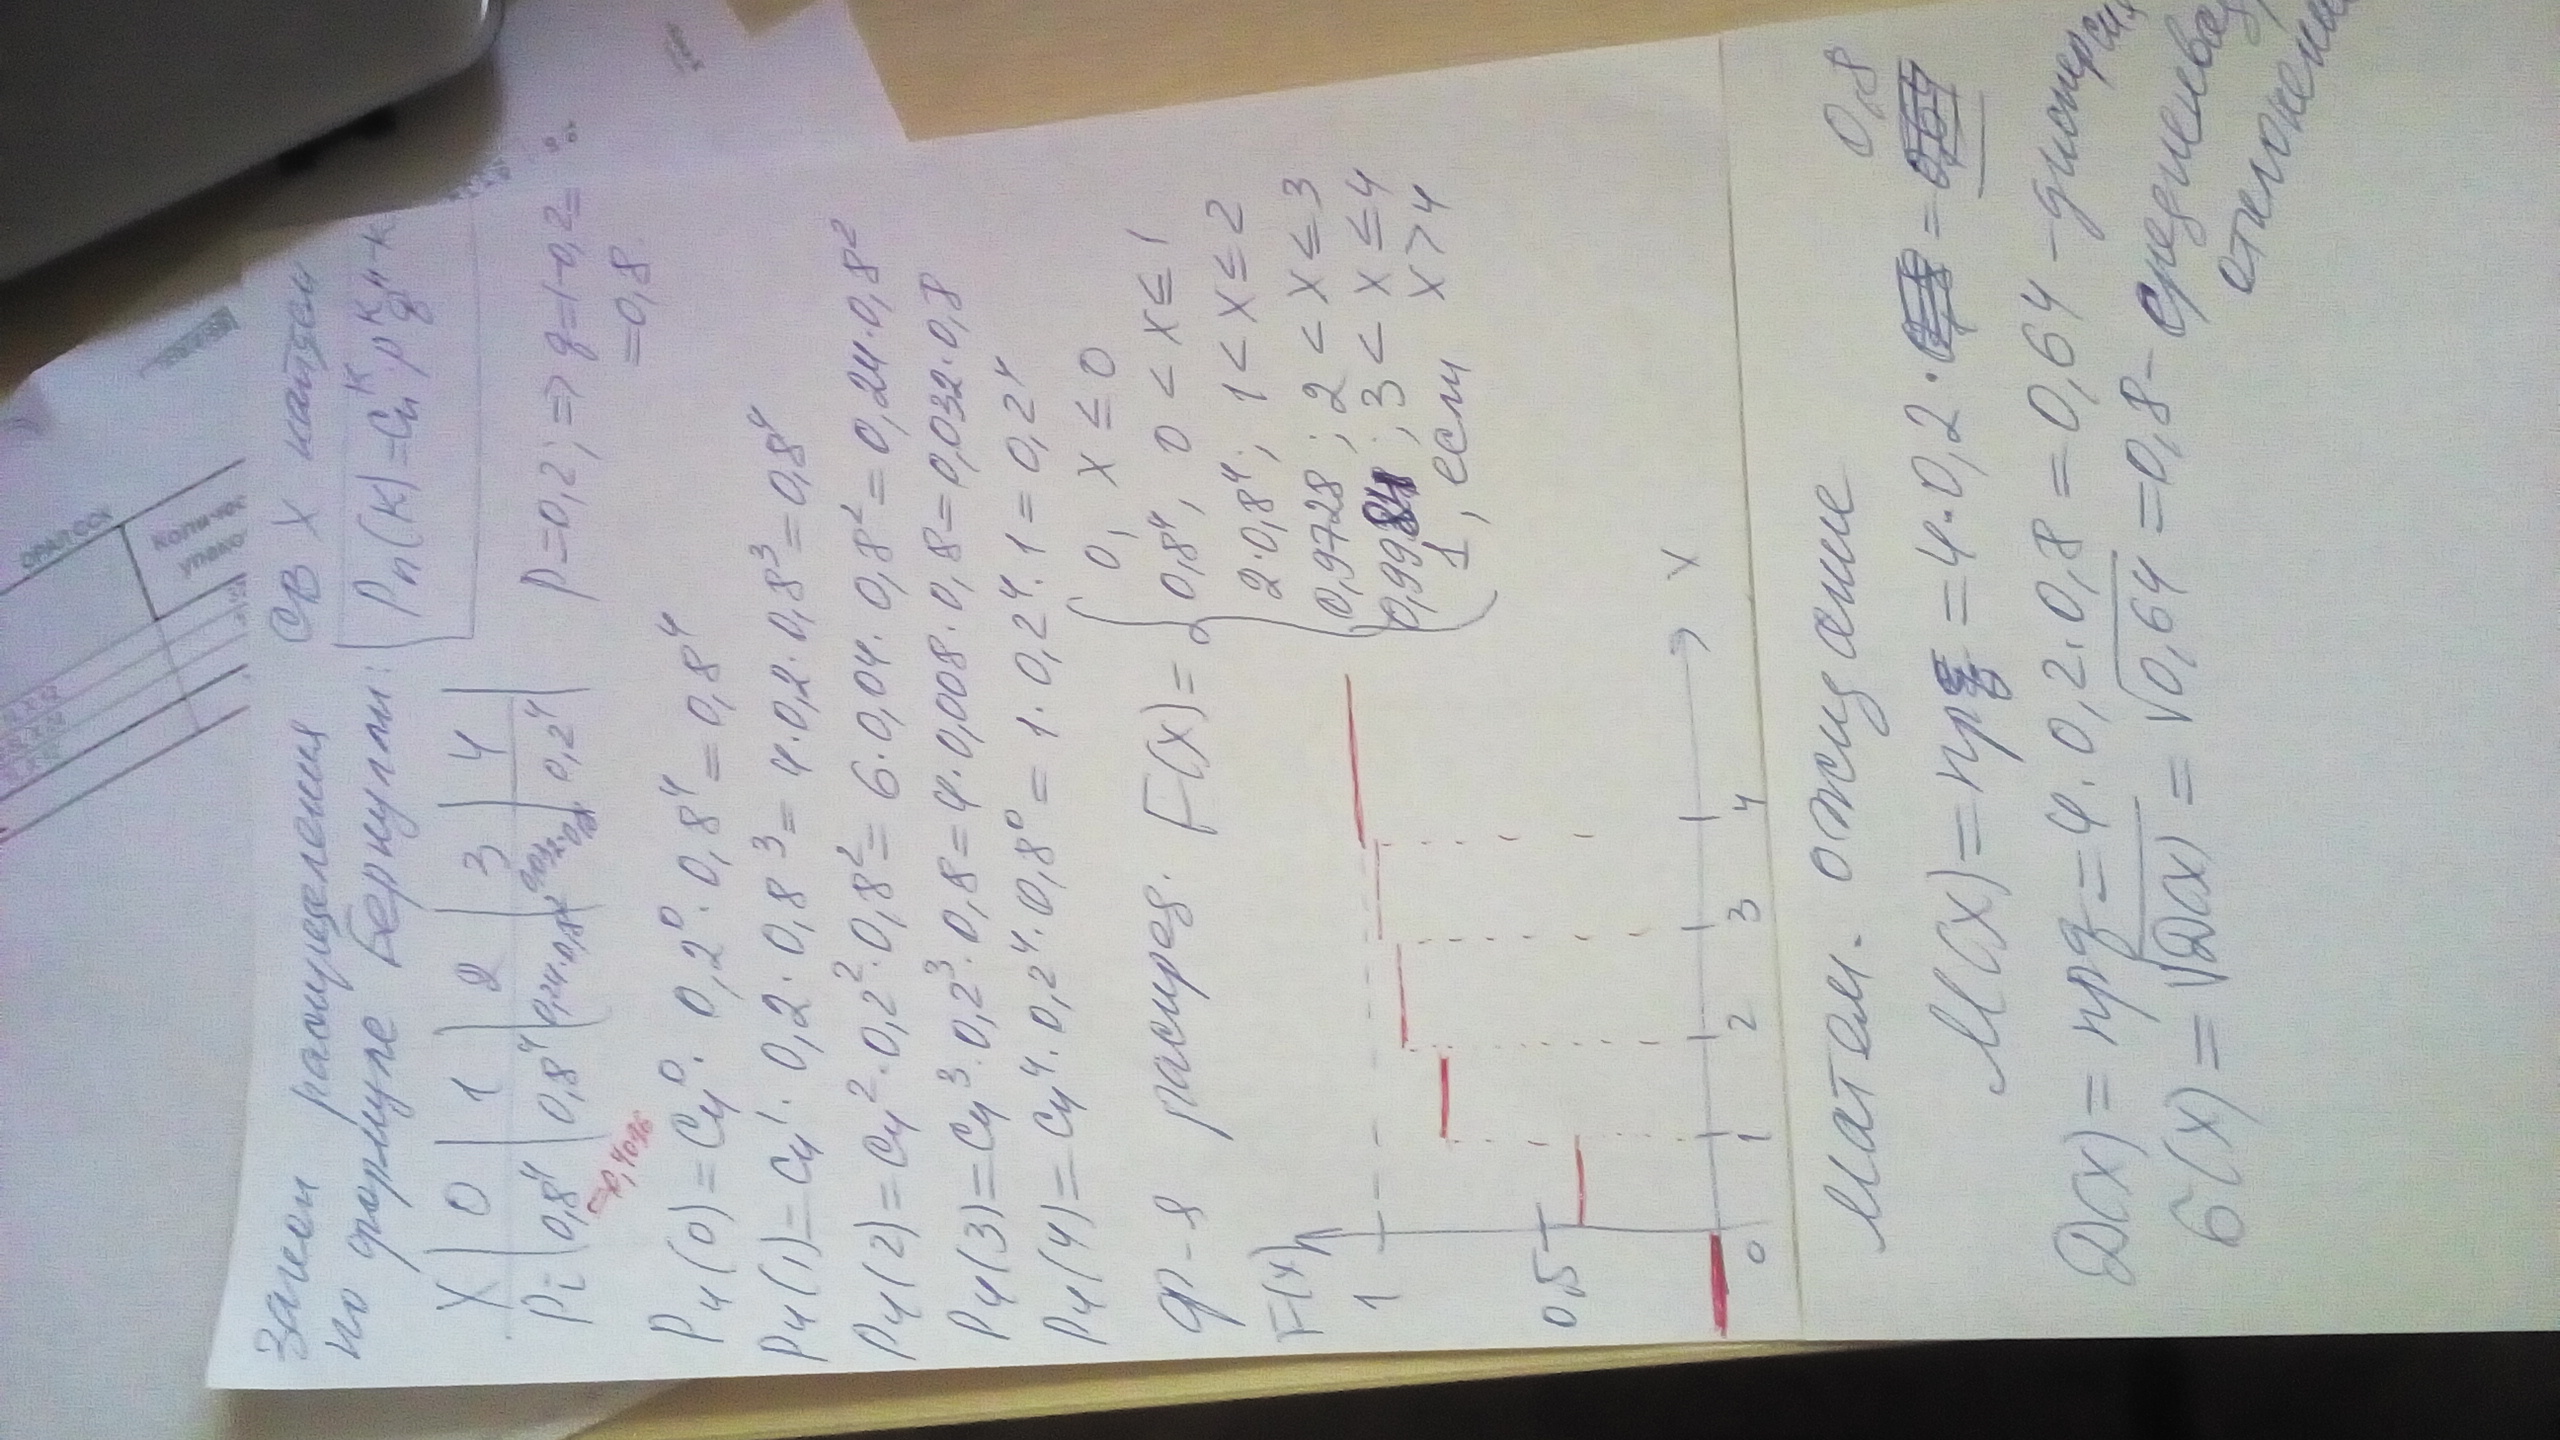 Закон распределения СВ X найдем
по формуле Бернулли: Pn(k) = Cn^k · p^k q^n-k
X | 0 | 1 | 2 | 3 | 4
Pi | 0,8^4 | 0,8^4 | 0,24·0,8^2 | 0,032·0,8 | 0,2^4
=0,4096
p=0,2; => q=1-0,2=
=0,8
P4(0)=C4^0 · 0,2^0 · 0,8^4 = 0,8^4
P4(1)=C4^1 · 0,2 · 0,8^3 = 4·0,2·0,8^3 = 0,8^4
P4(2)=C4^2 · 0,2^2 · 0,8^2 = 6·0,04·0,8^2 = 0,24·0,8^2
P4(3)=C4^3 · 0,2^3 · 0,8 = 4·0,008·0,8 = 0,032·0,8
P4(4)=C4^4 · 0,2^4 · 0,8^0 = 1·0,2^4·1 = 0,2^4
ф-я распред. F(x) =
0, x ≤ 0
0,8^4, 0 < x ≤ 1
2·0,8^4; 1 < x ≤ 2
0,9728; 2 < x ≤ 3
0,9984; 3 < x ≤ 4
1, если x > 4
F(x)
1
0,5
0 1 2 3 4
x
Матем. ожидание
M(x) = np = 4·0,2 = 0,8
D(x) = npq = 4·0,2·0,8 = 0,64 - дисперсия
σ(x) = √D(x) = √0,64 = 0,8 -
ОРАЛ ССК
КОЛИ-ЧЕС
УПАКО